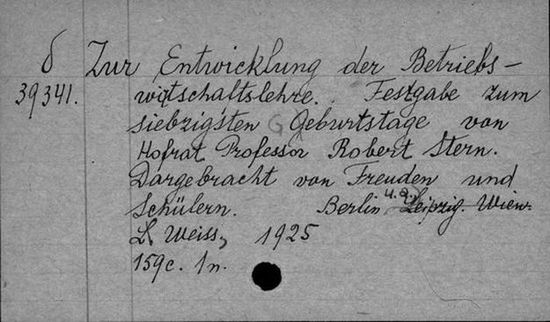 δ Zur Entwicklung der Betriebs-
39341. wirtschaftslehre. Festgabe zum
siebzigsten Geburtstage von
Hofrat Professor Robert Stern.
Dargebracht von Freuden und
Schülern. Berlin u. a. Leipzig. Wien:
L. Weiss, 1925
159c. 1n.